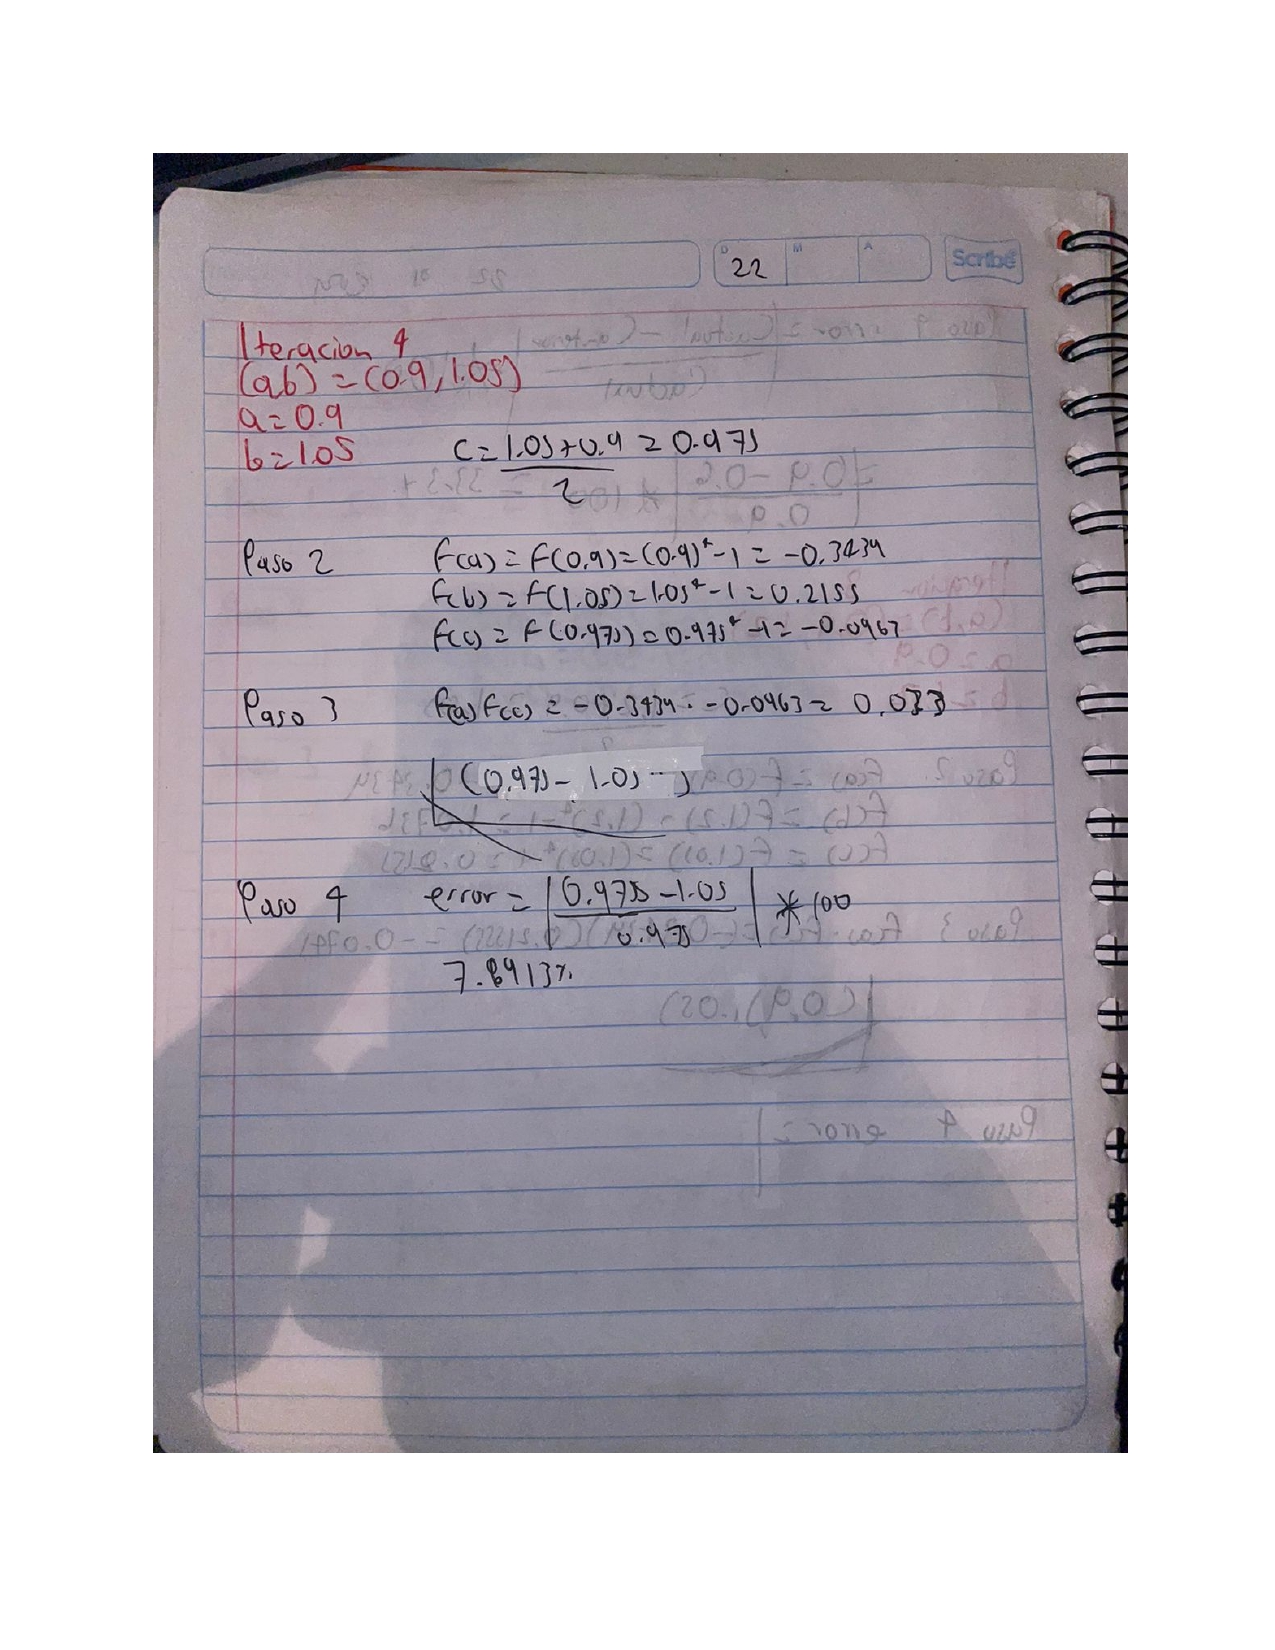 22
Scribe
Iteracion 4
(ab) = (0.9, 1.05)
a = 0.9
b = 1.05 c = 1.05+0.9 = 0.975
2
Paso 2 f(a) = f(0.9) = (0.9)⁴ - 1 = -0.3439
f(b) = f(1.05) = 1.05⁴ - 1 = 0.2155
f(c) = f(0.975) = 0.975⁴ - 1 = -0.0963
Paso 3 f(a) f(c) = -0.3439 · -0.0963 = 0.033
(0.975 - 1.05
Paso 4 error = | 0.975 - 1.05 | * 100
0.975
7.6913%